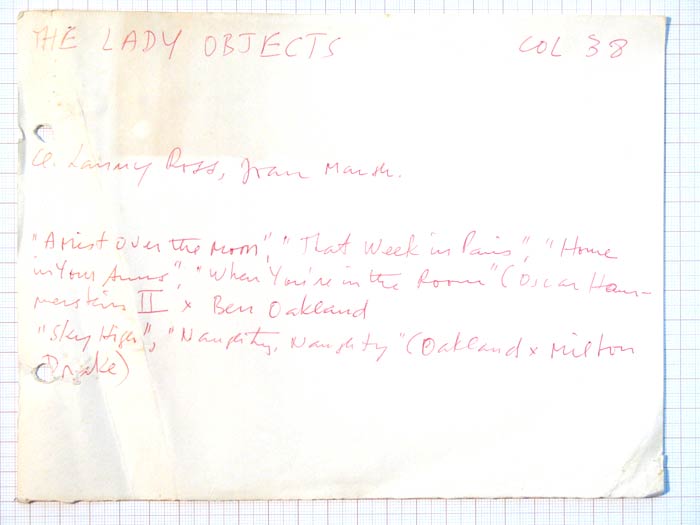 THE LADY OBJECTS COL 38
C. Lanny Ross, Joan Marsh.
"A Mist Over the Moon", "That Week in Paris", "Home
in Your Arms", "When You're in the Room" (Oscar Ham-
merstein II x Ben Oakland
"Sky High", "Naughty, Naughty" (Oakland x Milton
Drake)